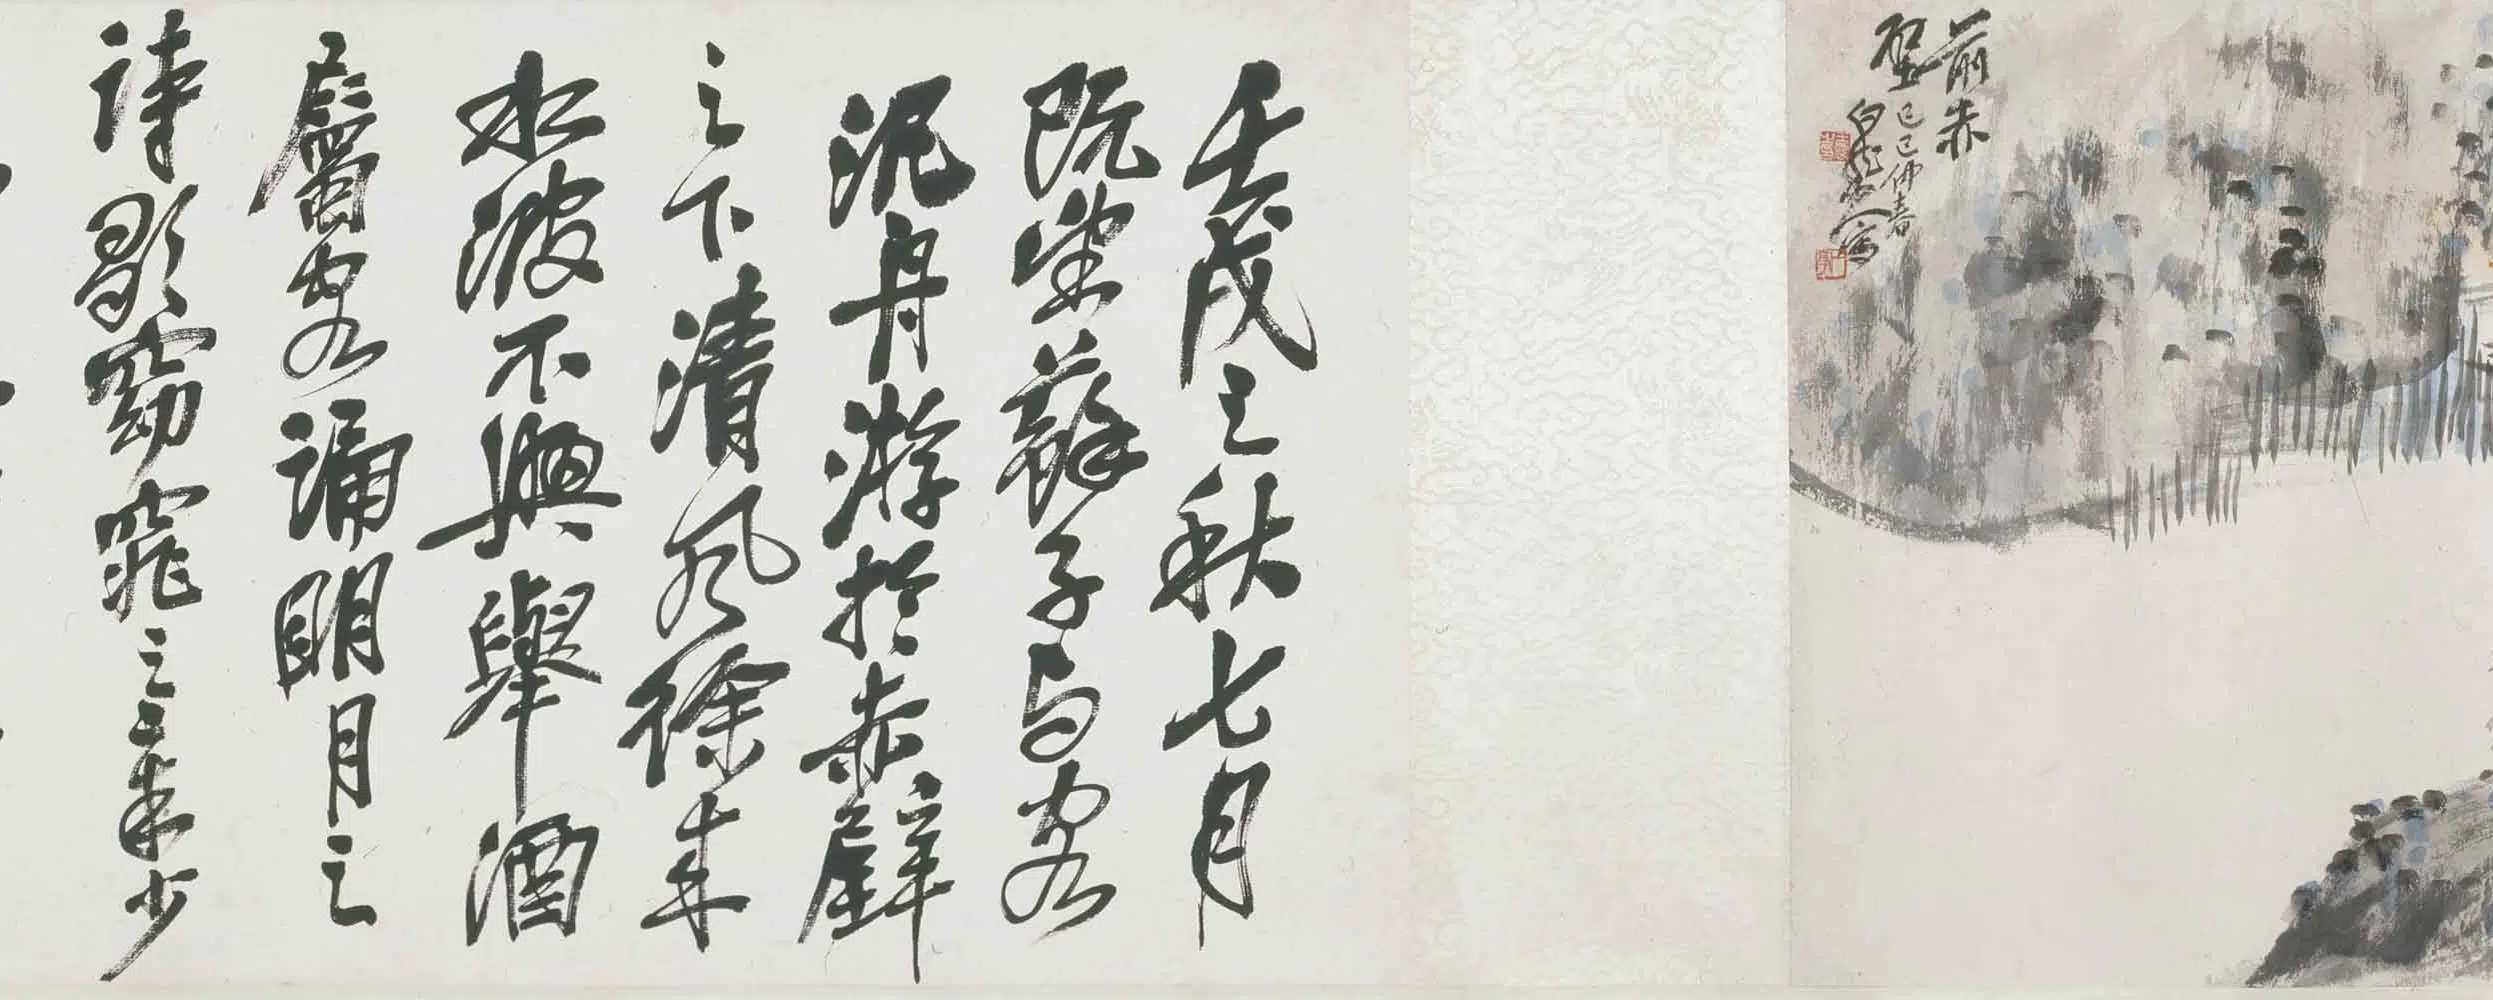 前赤
壁
己巳仲春
白龍山人寫
壬戌之秋七月
既望蘇子与客
泛舟游於赤壁
之下清風徐来
水波不興舉酒
屬客誦明月之
詩歌窈窕之章少